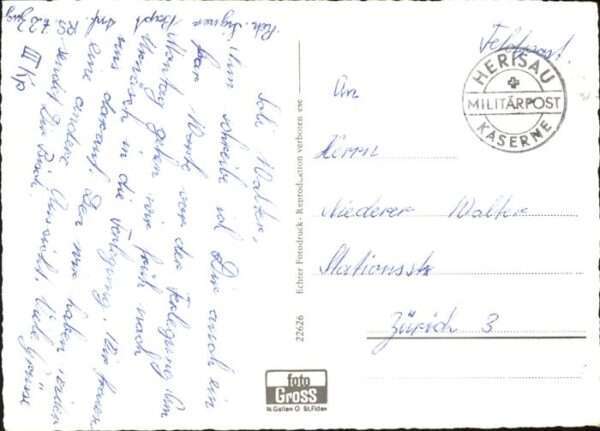 Feldpost.
HERISAU
MILITÄRPOST
KASERNE
An
Herrn
Niederer Walter
Stationsstr
Zürich 3
Echter Fotodruck - Reproduktion verboten
22626
foto
GROSS
St.Gallen O St.Fiden
Walter,
Nun schreibe ich Dir auch ein
paar Worte vor der Verlegung. Am
Montag gehen wir früh nach
Urnäsch in die Verlegung. Wir freuen
uns darauf. Denn wir haben wieder
eine andere Umsicht. Viele Grüsse
sendet Dir
Rekr.
III Kp